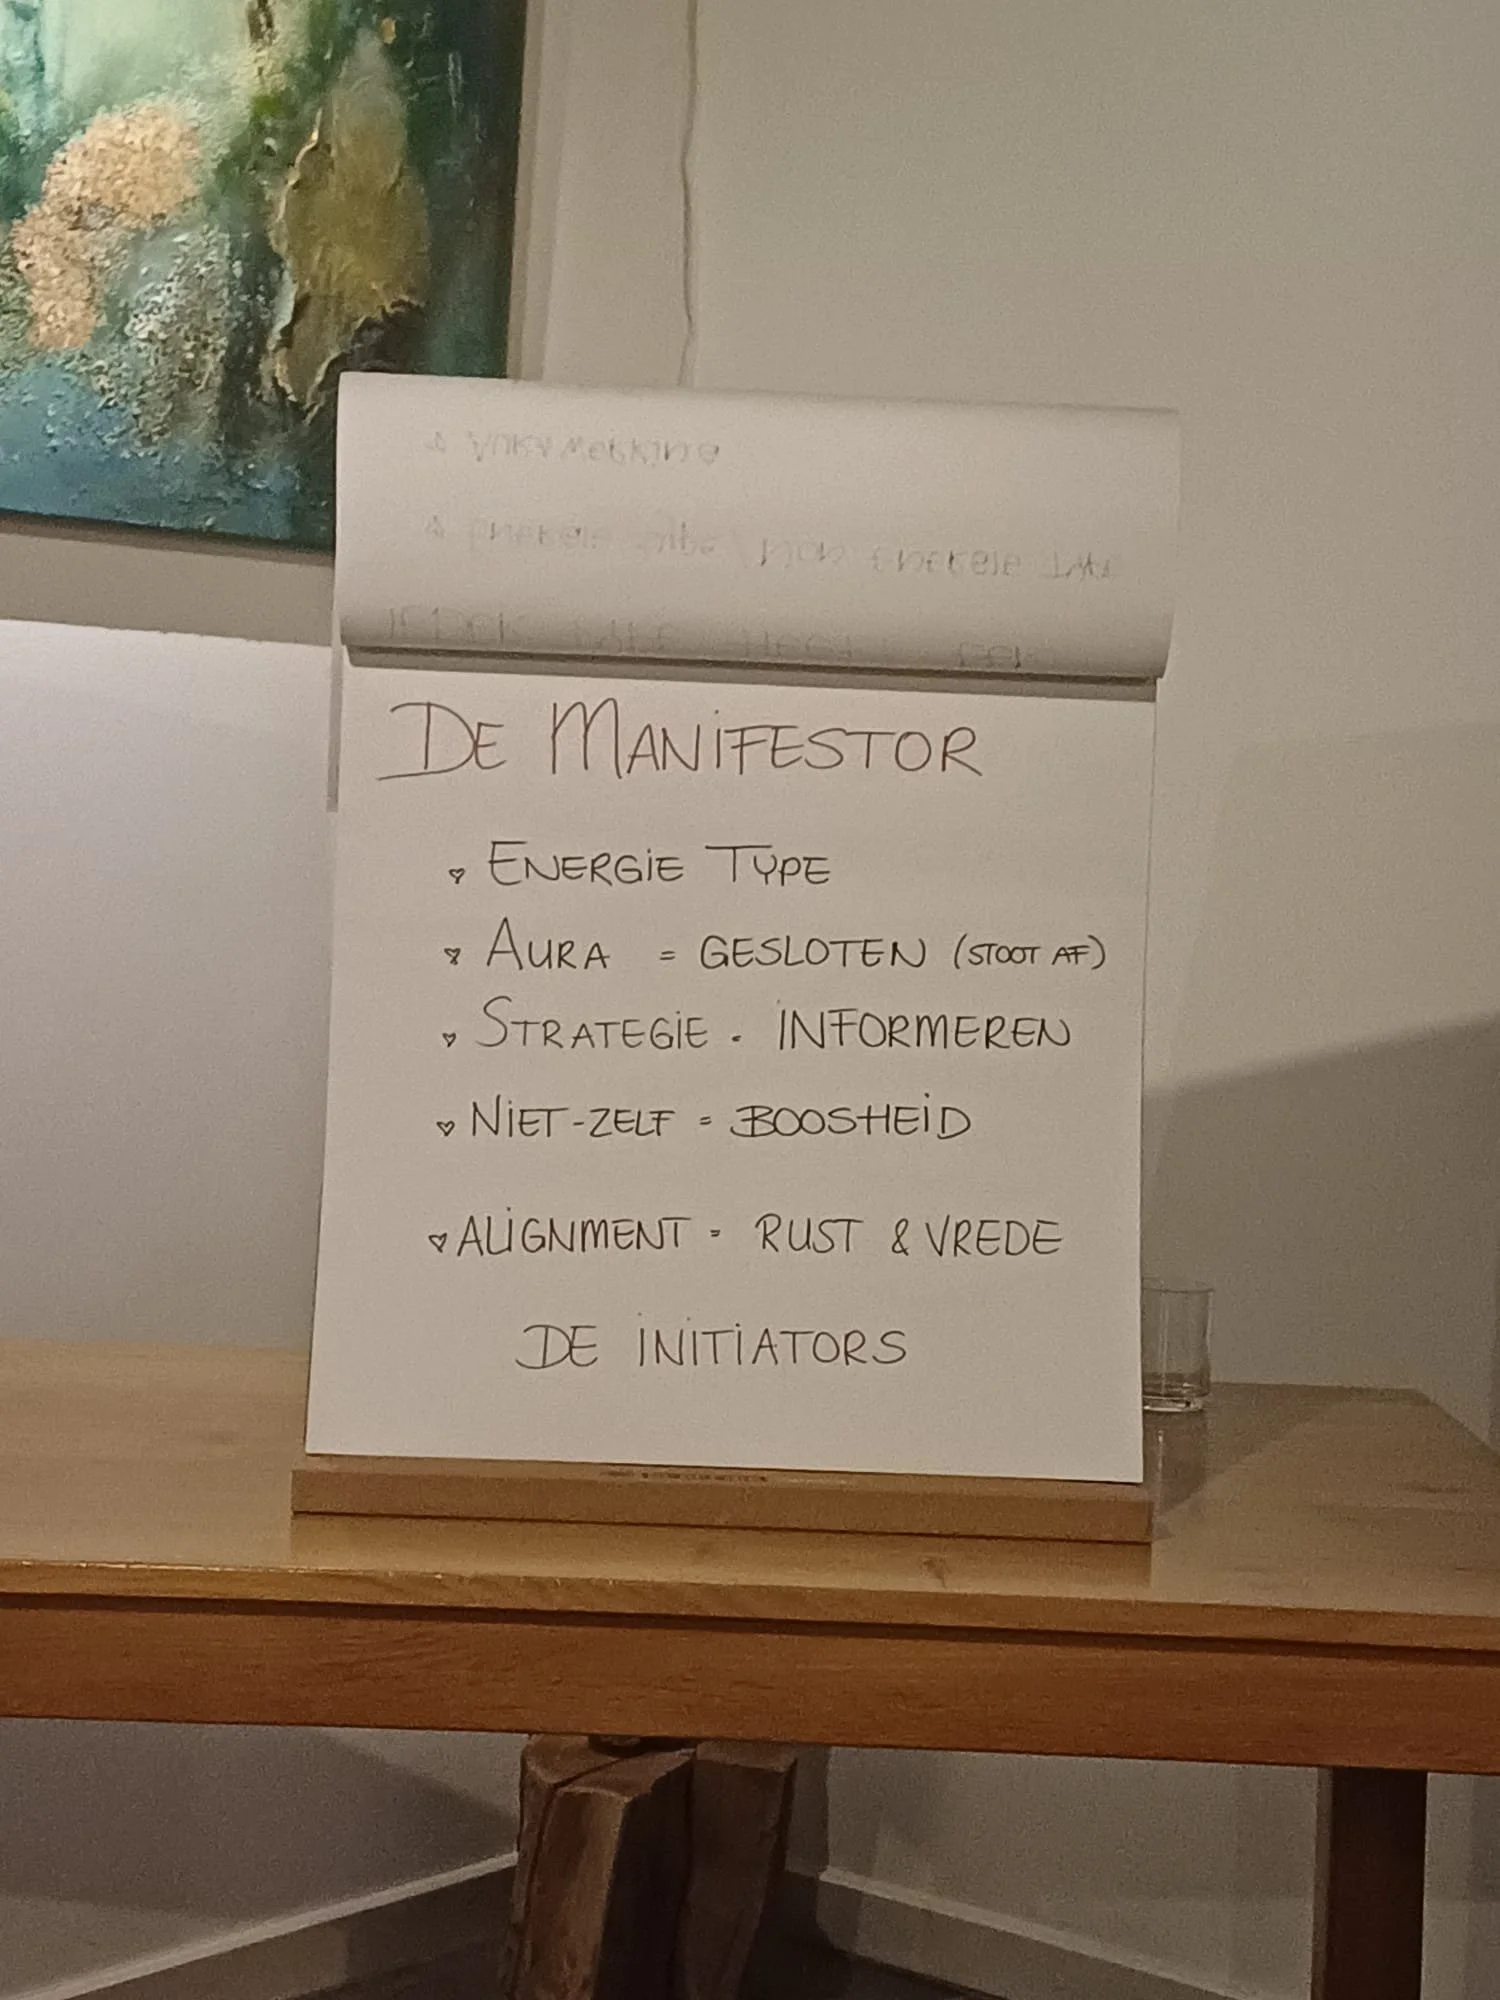 DE MANIFESTOR
ENERGIE TYPE
AURA = GESLOTEN (STOOT AF)
STRATEGIE = INFORMEREN
NIET-ZELF = BOOSHEID
ALIGNMENT = RUST & VREDE
DE INITIATORS